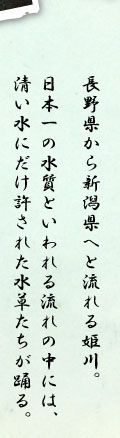 長野県から新潟県へと流れる姫川。
日本一の水質といわれる流れの中には、
清い水にだけ許された水草たちが踊る。